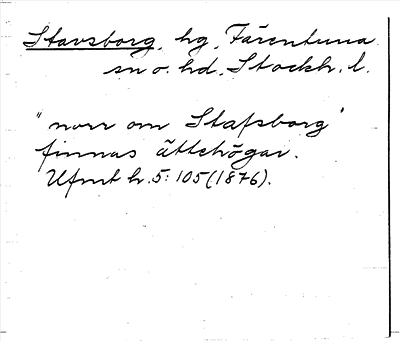 Stavsborg, hg, Färentuna
sn o. hd, Stockh. l.
"norr om Stafsborg"
finnas ättehögar.
Ufmt h.5: 105 (1876).